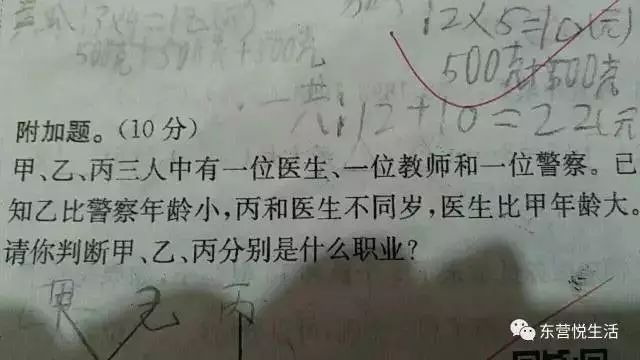 2×5=10(元)
500克+500克
一共:12+10=22(元
附加题。(10分)
甲、乙、丙三人中有一位医生、一位教师和一位警察。已
知乙比警察年龄小,丙和医生不同岁,医生比甲年龄大。
请你判断甲、乙、丙分别是什么职业?
甲 乙 丙
东营悦生活